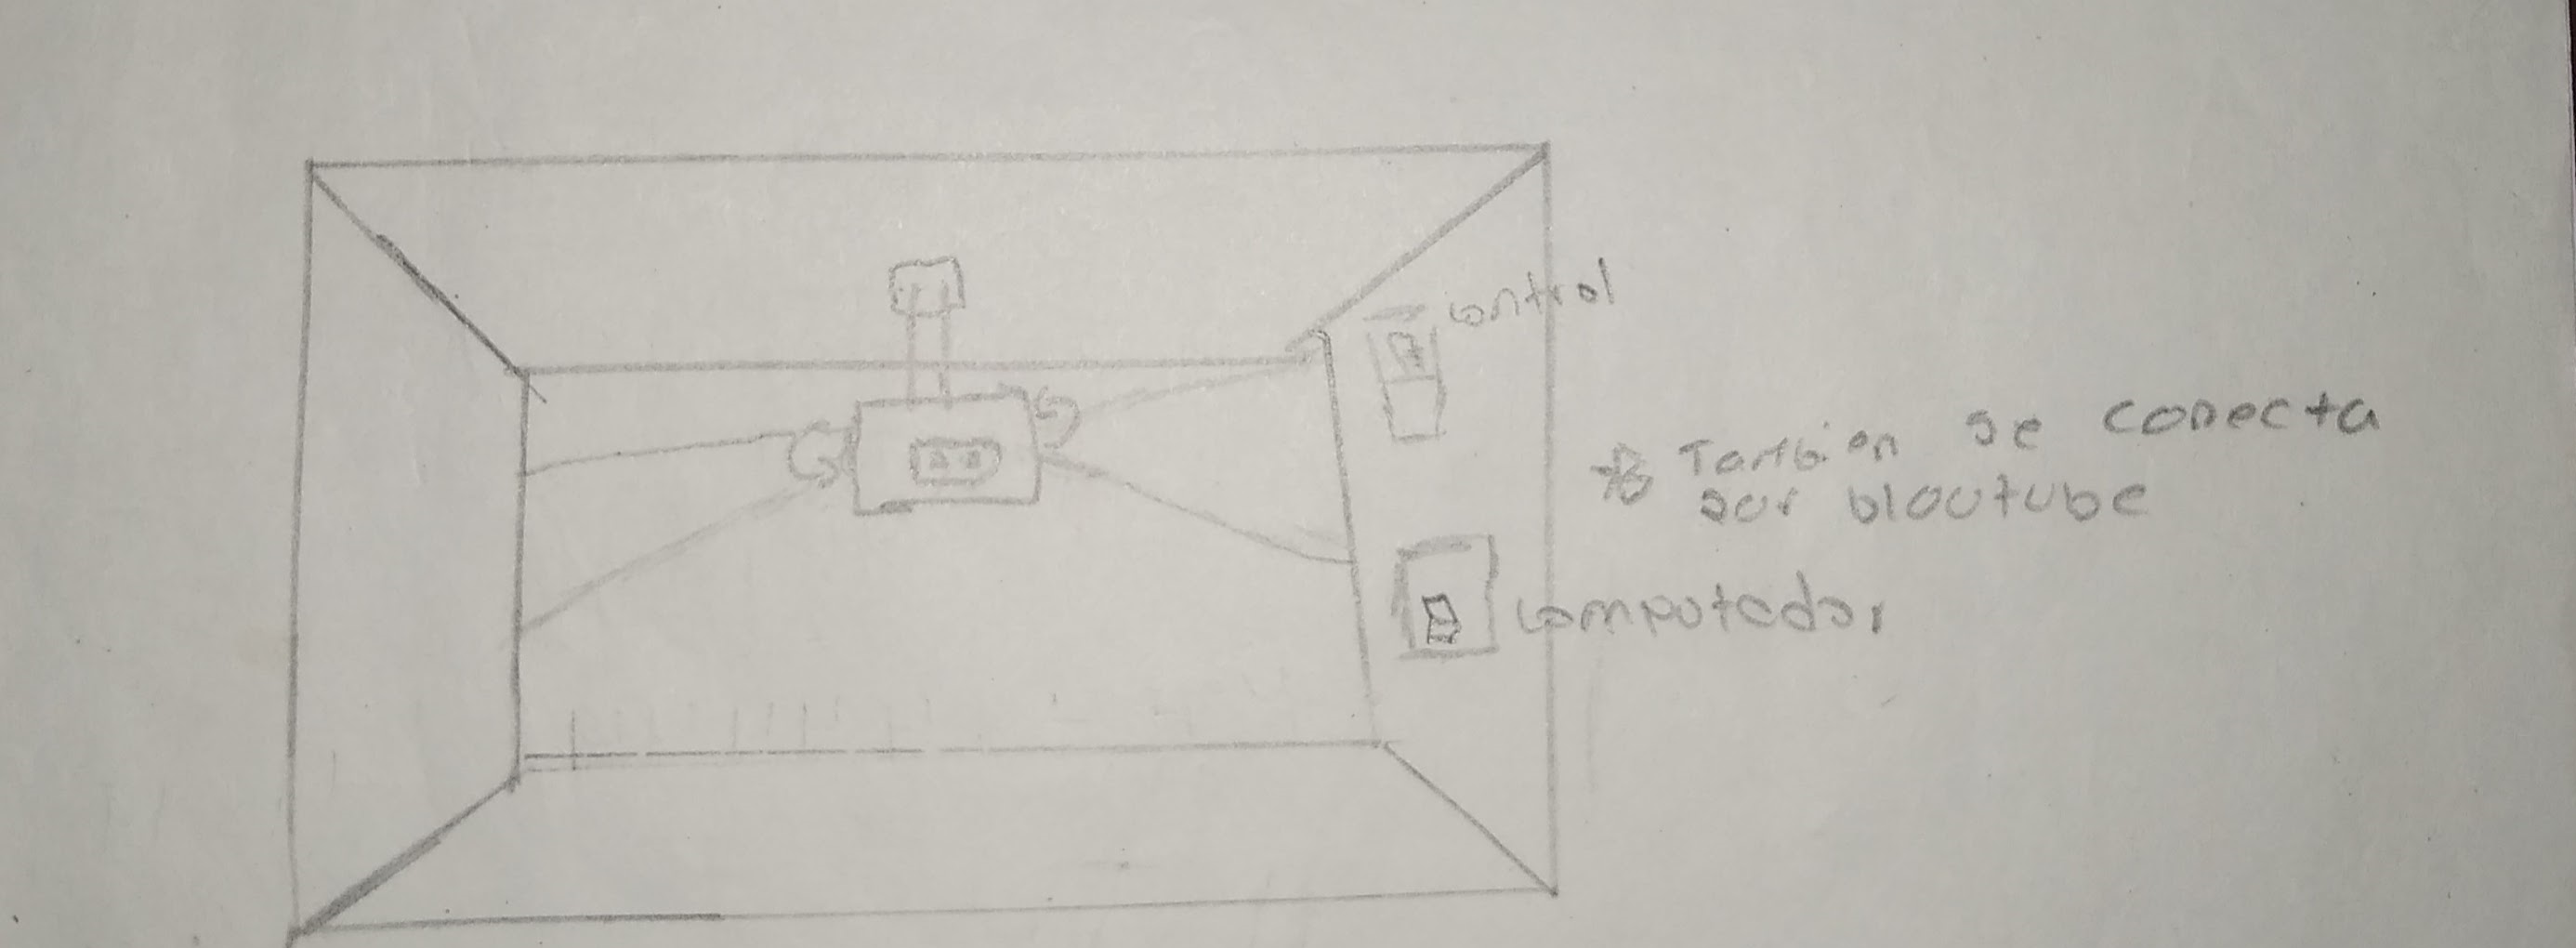 control
* Tambien se conecta
por bloutube
computador